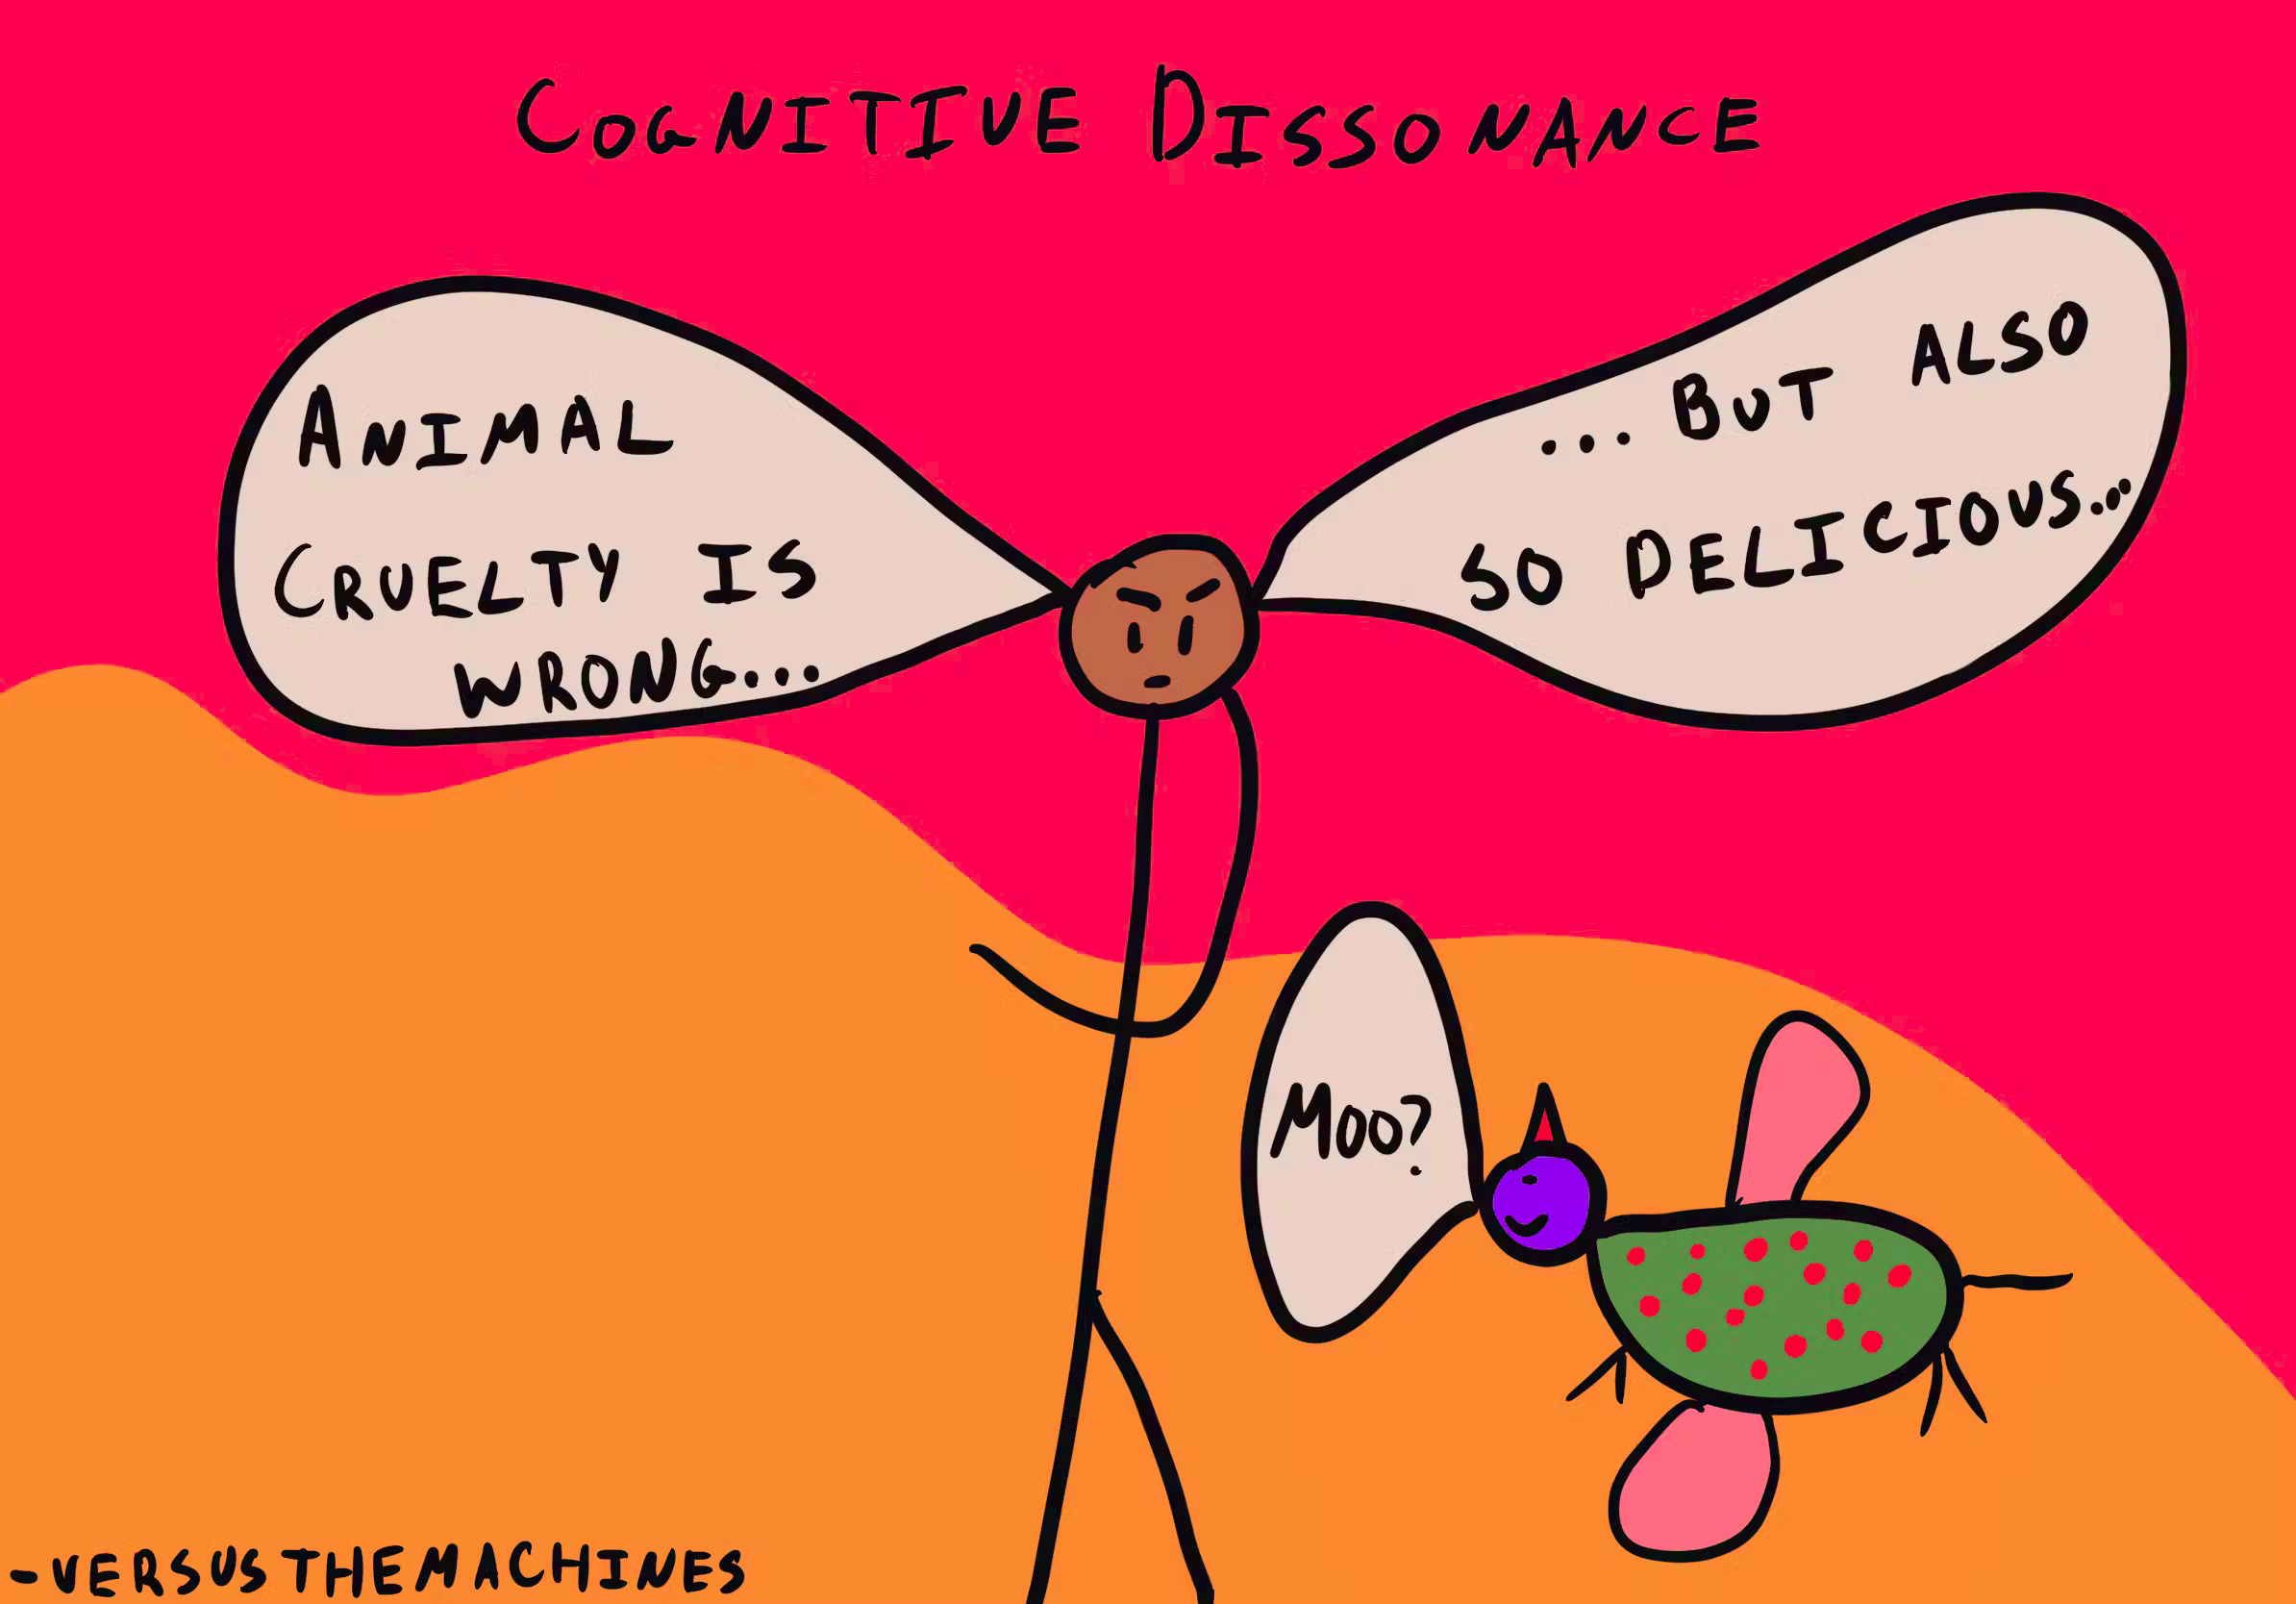 COGNITIVE DISSONANCE
ANIMAL
CRUELTY IS
WRONG....
... BUT ALSO
SO DELICIOUS...
MOO?
-VERSUSTHEMACHINES